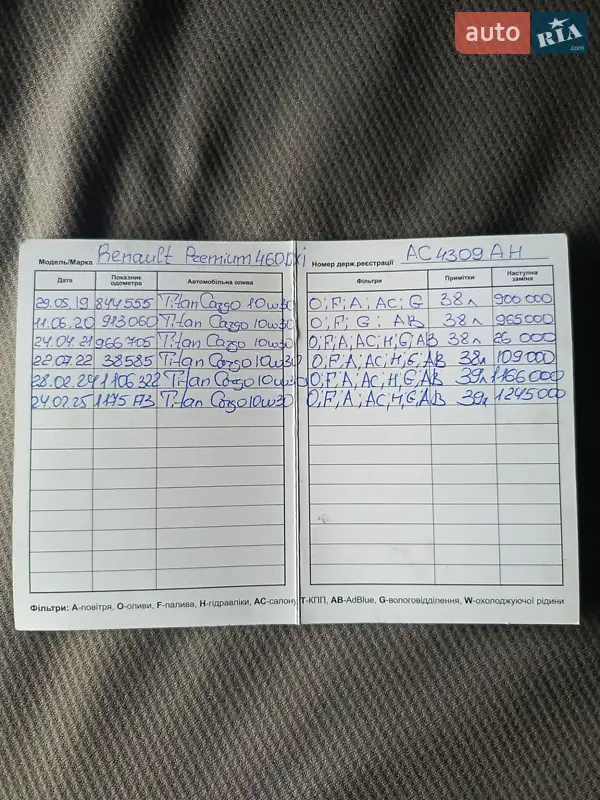 auto RIA .com
Модель/Марка Renault Premium 460DXi Номер держ.реєстрації AC4309AH
Дата Показник одометра Автомобільна олива Фільтри Примітки Наступна заміна
29.05.19 844555 Titan Cargo 10w30 O; F; A; AC; G 38л 900 000
11.06.20 913060 Titan Cargo 10w30 O; F; G; AB 38л 965000
24.04.21 966705 Titan Cargo 10w30 O; F; A; AC; H; G; AB 38л 26 000
22.07.22 38585 Titan Cargo 10w30 O; F; A; AC; H; G; AB 38л 109000
28.02.24 1106322 Titan Cargo 10w30 O; F; A; AC; H; G; AB 39л 1166000
24.02.25 Titan Cargo 10w30 O; F; A; AC; H; G; AB 39л 1245000
Фільтри: А-повітря, О-оливи, F-палива, Н-гідравліки, АС-салону, Т-КПП, АВ-AdBlue, G-вологовідділення, W-охолоджуючої рідини